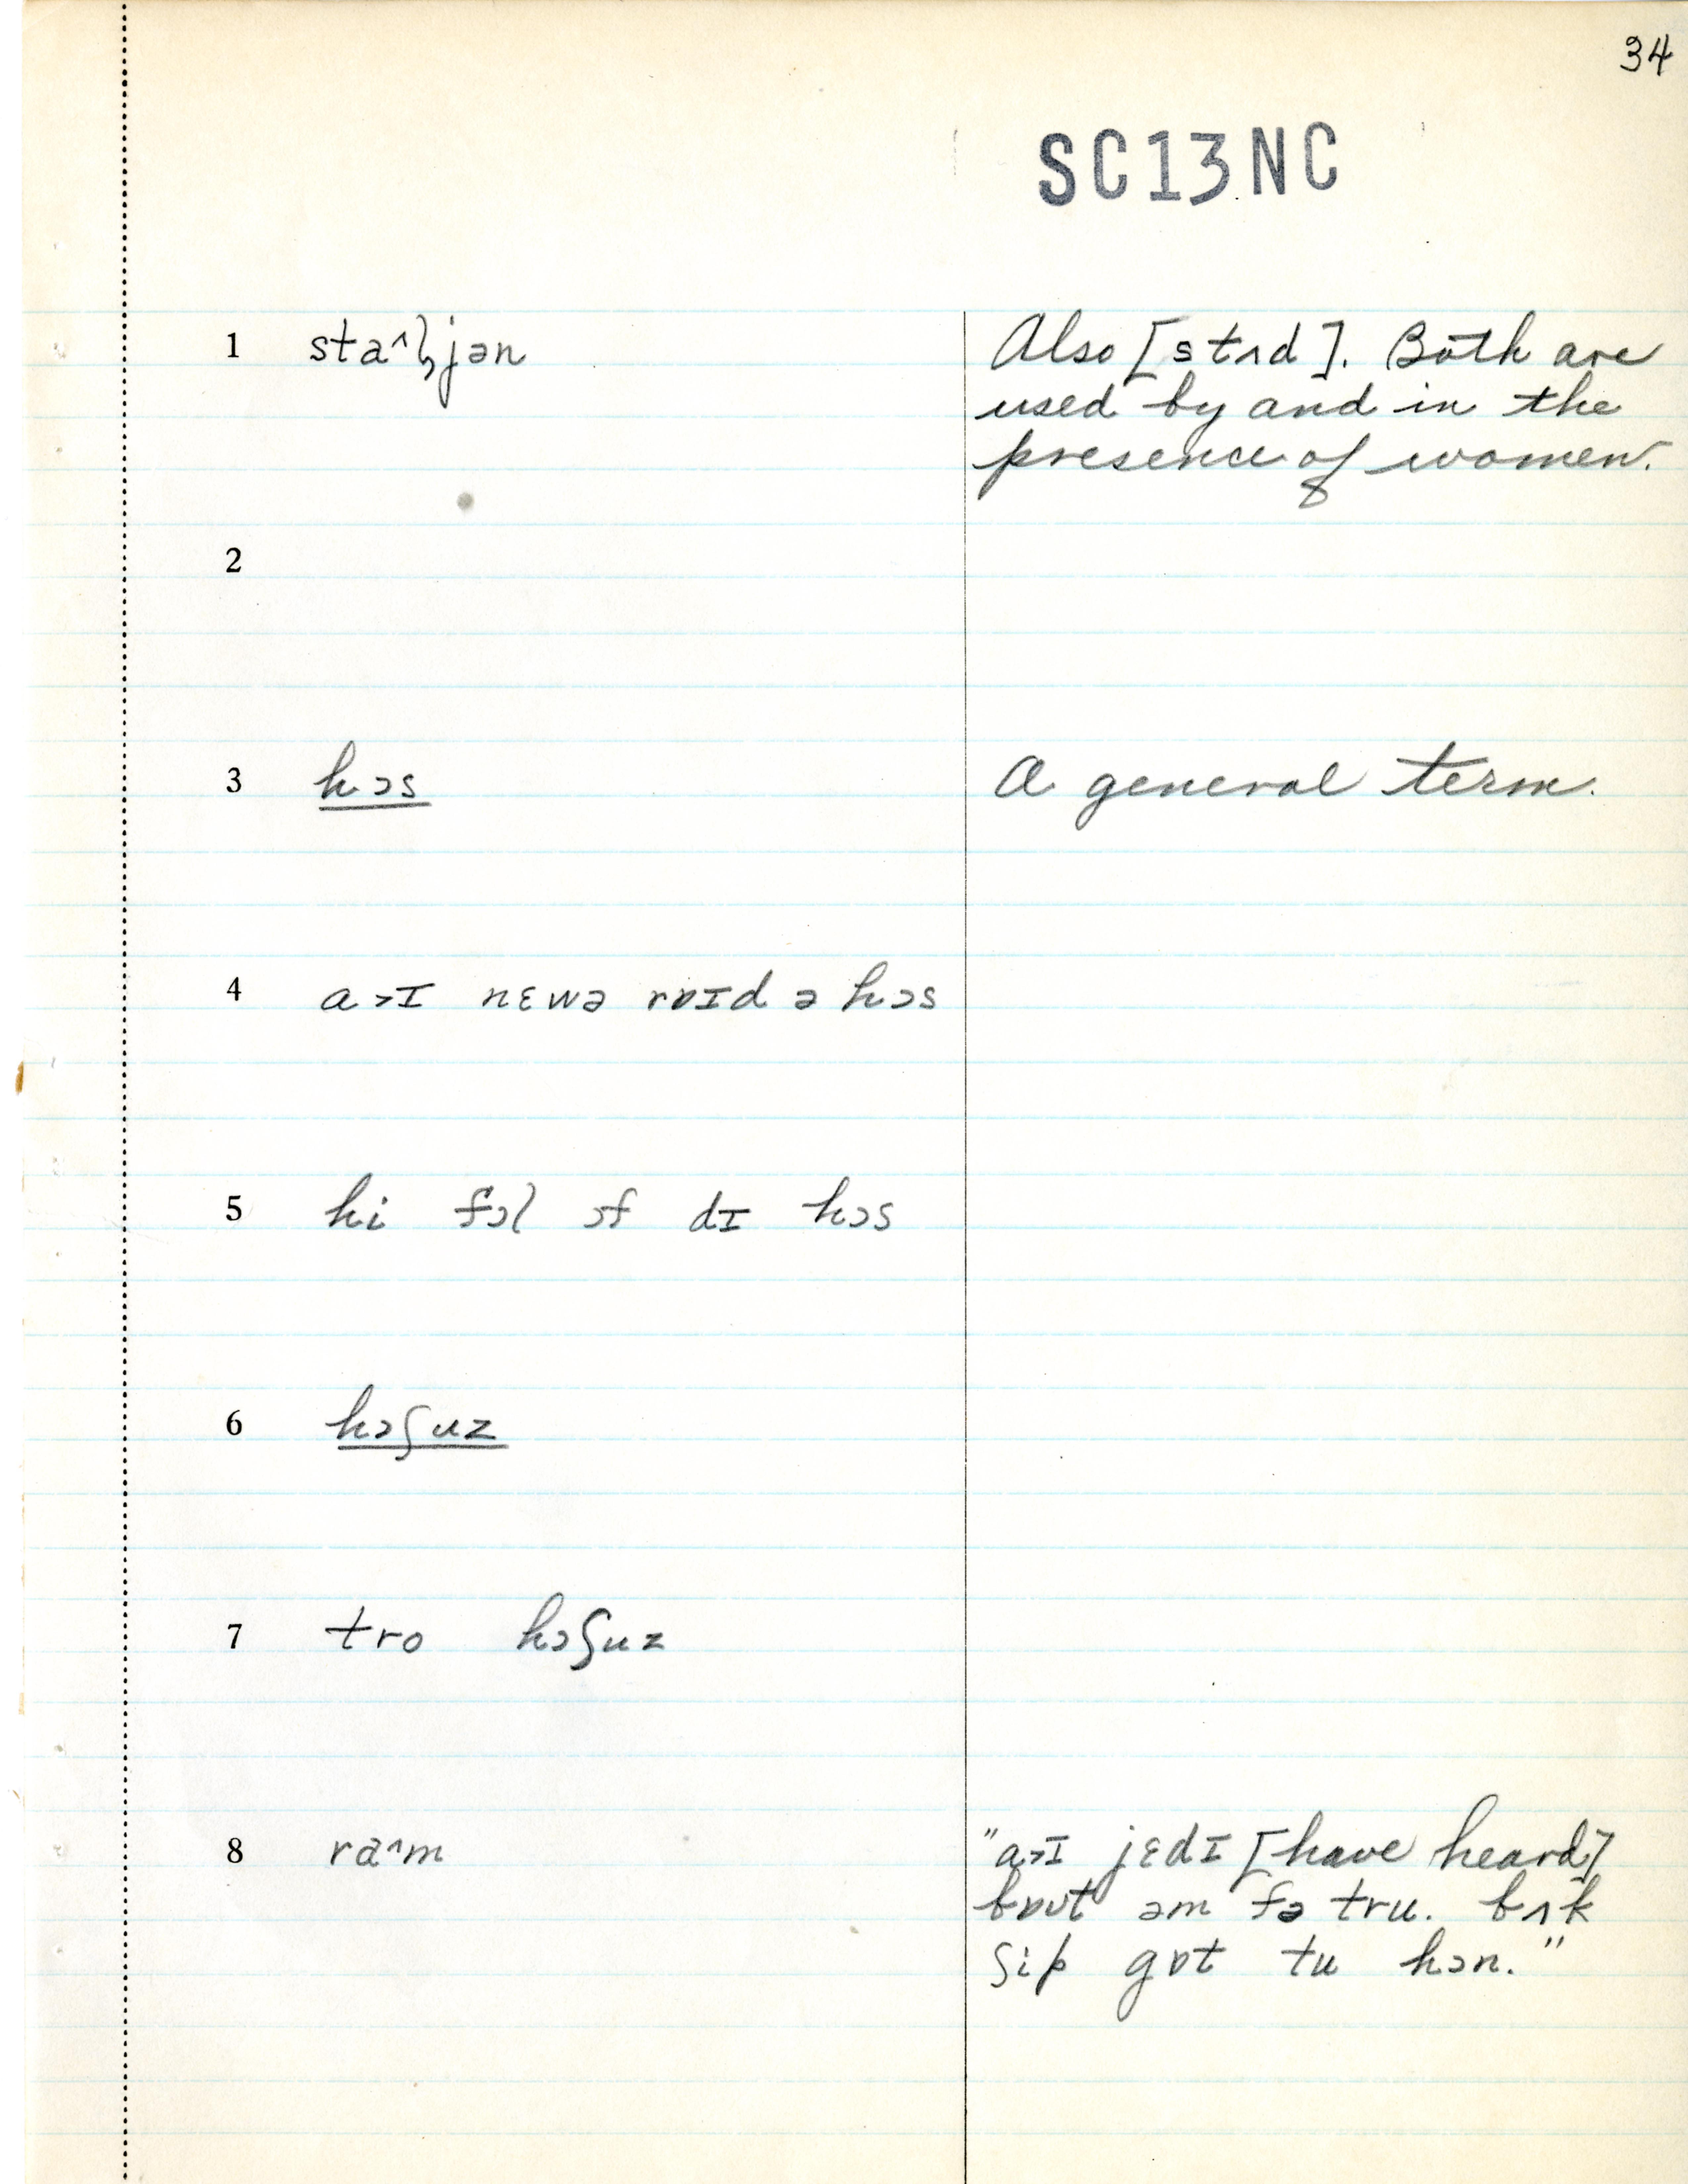 34
SC13NC
1 staˆɫjən
Also [stʌd]. Both are
used by and in the
presence of women.
2
3 hɔs
A general term.
4 a>ɪ nɛwə rɒɪd ə hɔs
5 hi fɔl ɔf dɪ hɔs
6 hɔʃuz
7 tro hɔʃuz
8 raˆm
"a>ɪ jɛdɪ [have heard]
bɒut əm fə tru. bʌk
ʃip gɒt tu hɔn."